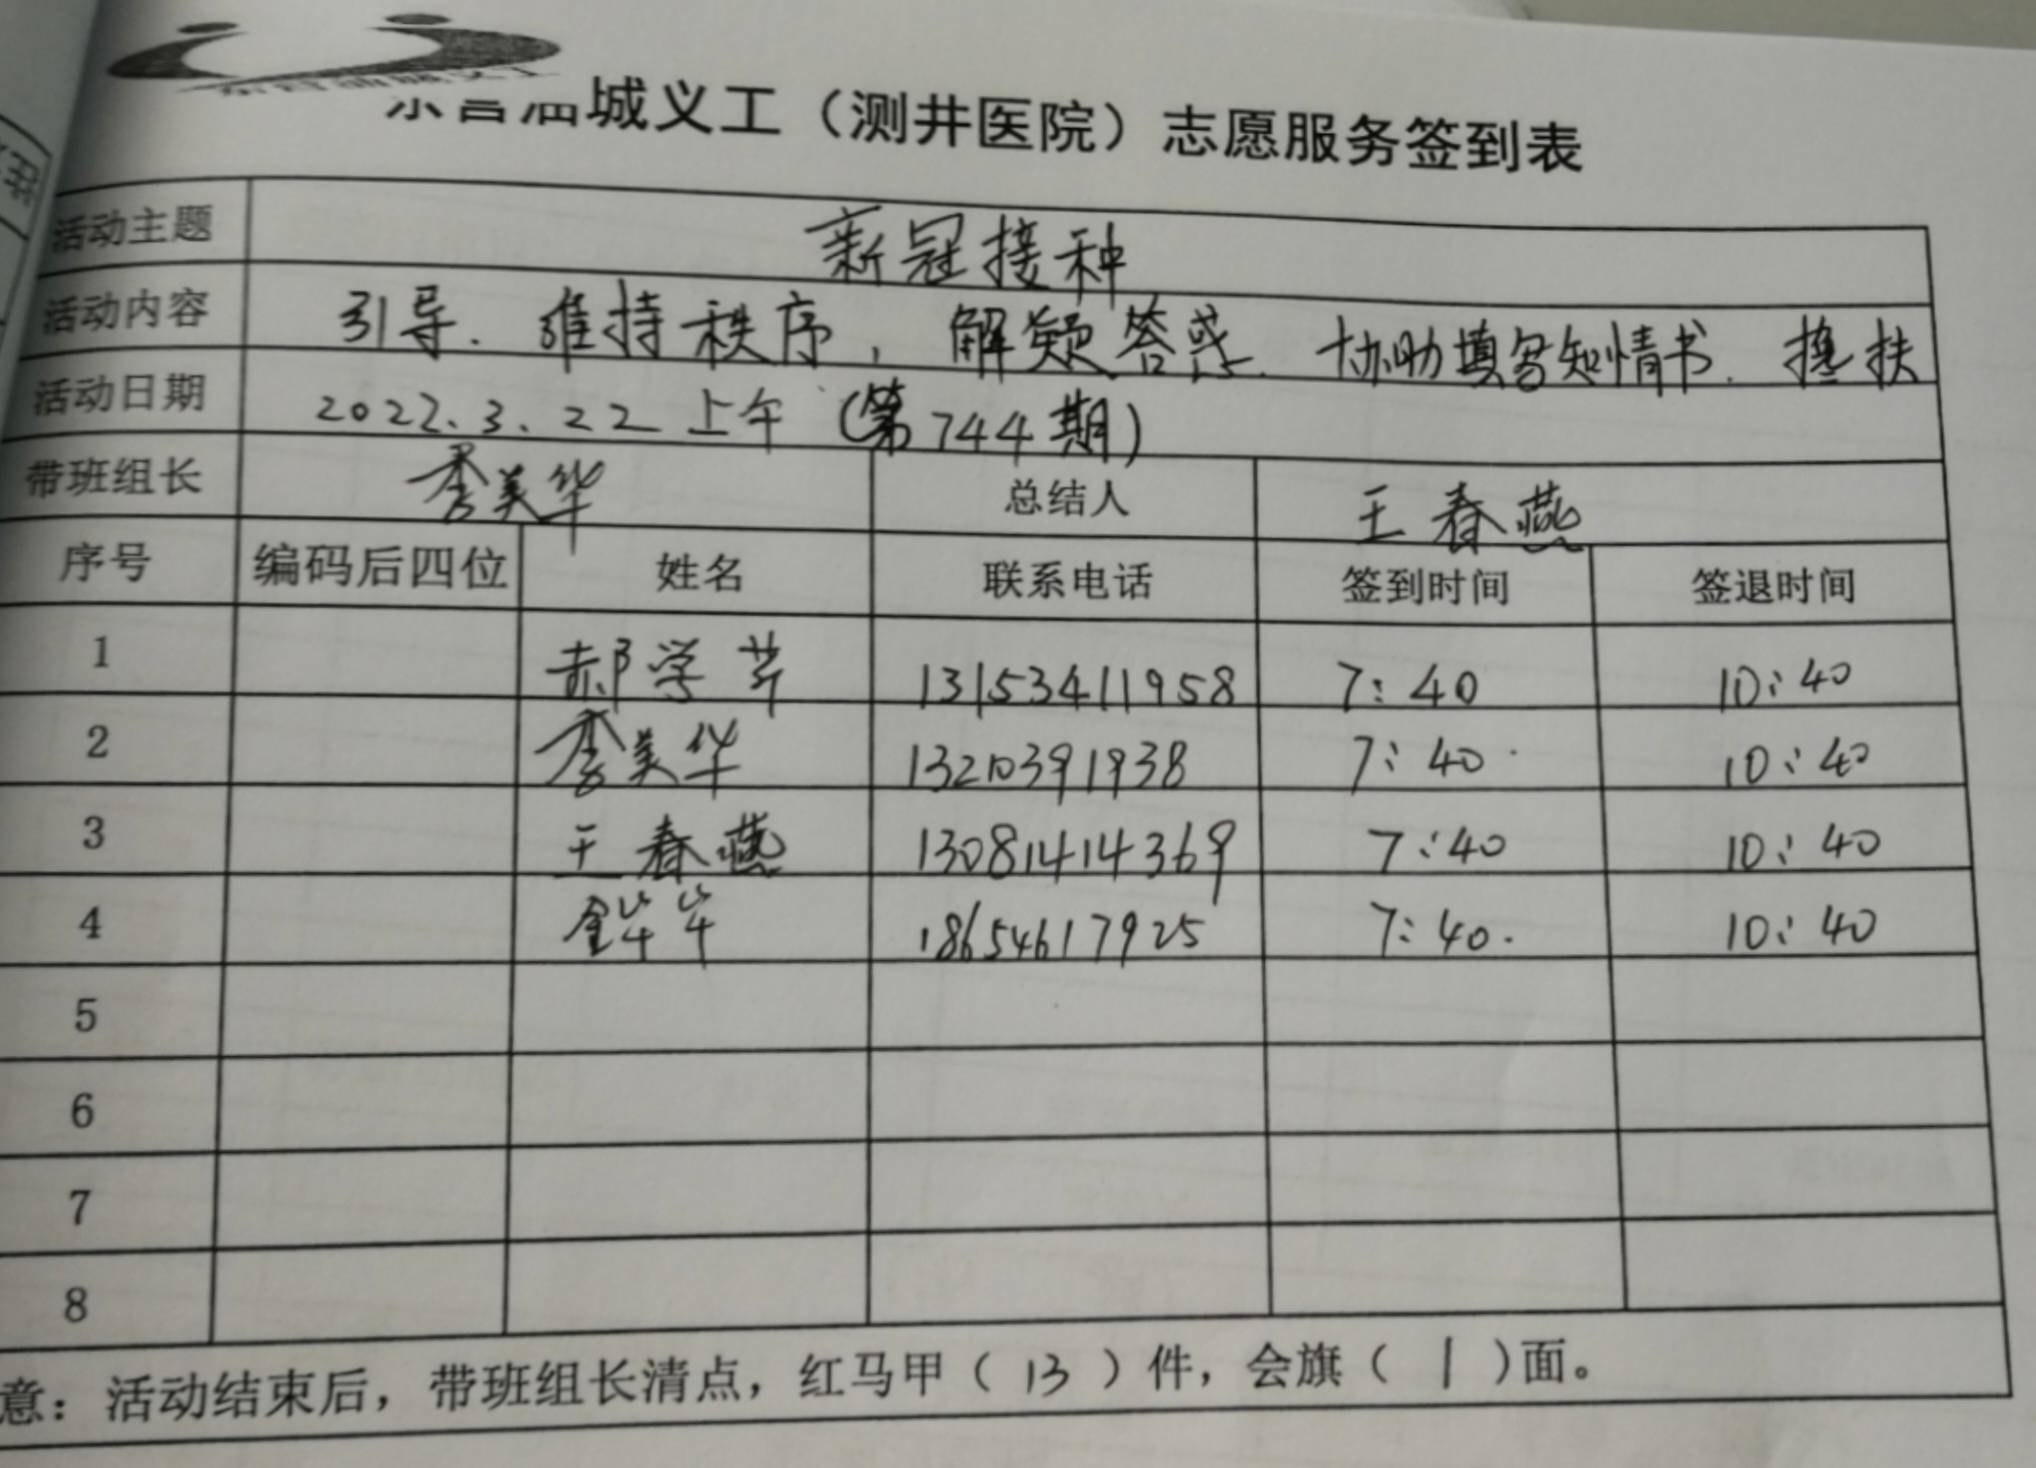 东营油城义工（测井医院）志愿服务签到表
活动主题 新冠接种
活动内容 引导. 维持秩序, 解疑答惑. 协助填写知情书. 搀扶
活动日期 2022.3.22上午（第744期）
带班组长 李美华 总结人 王春燕
序号 编码后四位 姓名 联系电话 签到时间 签退时间
1 郝学芹 13153411958 7:40 10:40
2 李美华 13210391938 7:40 10:40
3 王春燕 13081414369 7:40 10:40
4 18654617925 7:40. 10:40
5
6
7
8
意：活动结束后，带班组长清点，红马甲（ 13 ）件，会旗（ 1 ）面。